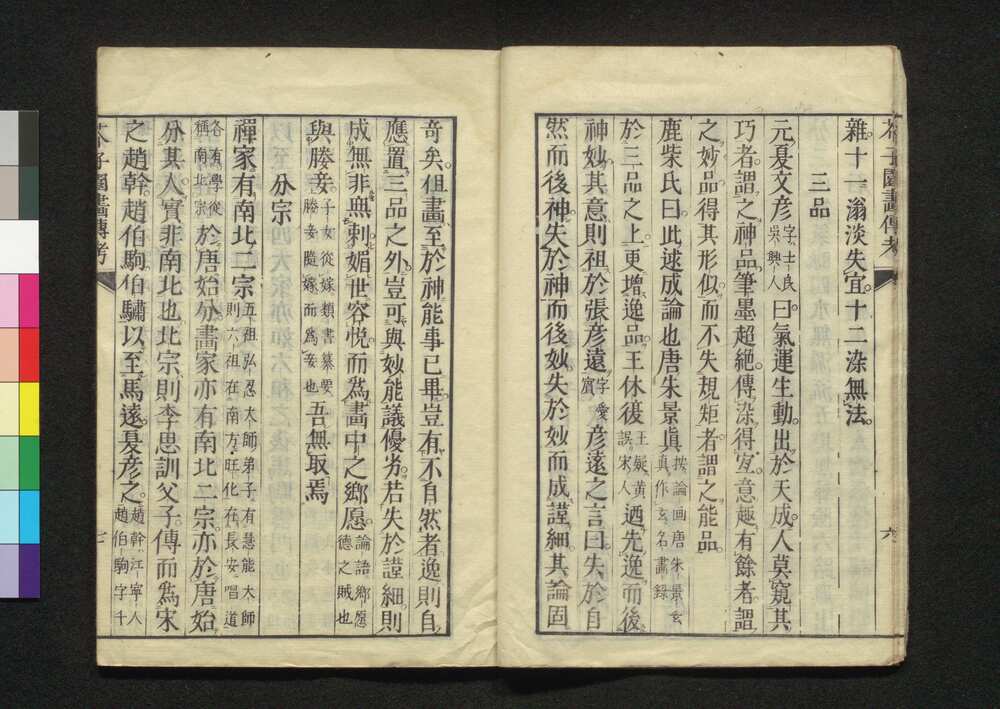 芥子園畫傳考
六
雜十一滃淡失宜十二染無法
三品
元夏文彦字士良吳興人曰氣運生動出於天成人莫窺其
巧者謂之神品筆墨超絶傳染得宜意趣有餘者謂
之妙品得其形似而不失規矩者謂之能品
鹿柴氏曰此述成論也唐朱景眞按論画唐朱景玄真作玄名畫録
於三品之上更增逸品王休復王疑黄誤宋人迺先逸而後
神妙其意則祖於張彦遠字愛賓彦遠之言曰失於自
然而後神失於神而後妙失於妙而成謹細其論固
奇矣但畫至於神能事已畢豈有不自然者逸則自
應置三品之外豈可與妙能議優劣若失於謹細則
成無非無刺媚世容悦而為畫中之鄉愿論語鄉愿德之賊也
與媵妾子女從嫁類書纂要媵妾隨嫁而為妾也吾無取焉
分宗
禪家有南北二宗五祖弘忍大師弟子有慧能大師則六祖在南方旺化在長安唱道
各有學從稱南北宗於唐始分畫家亦有南北二宗亦於唐始
分其人實非南北也北宗則李思訓父子傳而為宋
之趙幹趙伯駒伯驌以至馬遠夏彦之趙幹江寧人趙伯駒字千
芥子園畫傳考
七